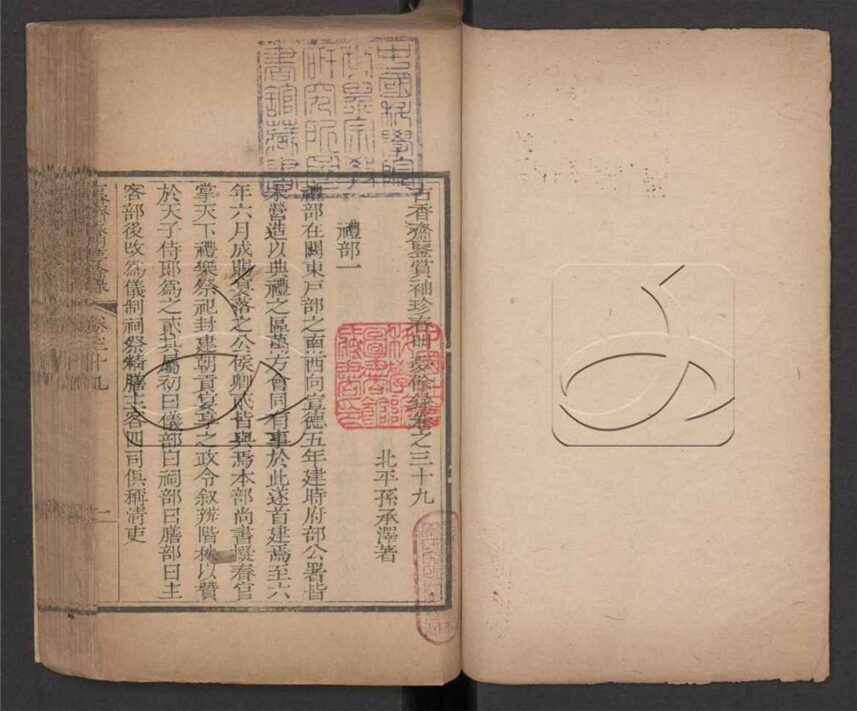 古香齋鑒賞袖珍春明夢餘錄卷之三十九
北平孫承澤著
禮部一
禮部在闕東戶部之南西向宣德五年建時府部公署皆
未營造以典禮之區萬方會同有事於此遂首建焉至六
年六月成賜宴落之公侯卿貳皆與焉本部尚書擬春官
掌天下禮樂祭祀封建朝貢宴享之政令叙辨階秩以贊
於天子侍郎爲之貳其屬初曰儀部曰祠部曰膳部曰主
客部後改爲儀制祠祭精膳主客四司俱稱清吏
卷三十九
一
中國科學院
世界宗教
研究所圖
書館藏書